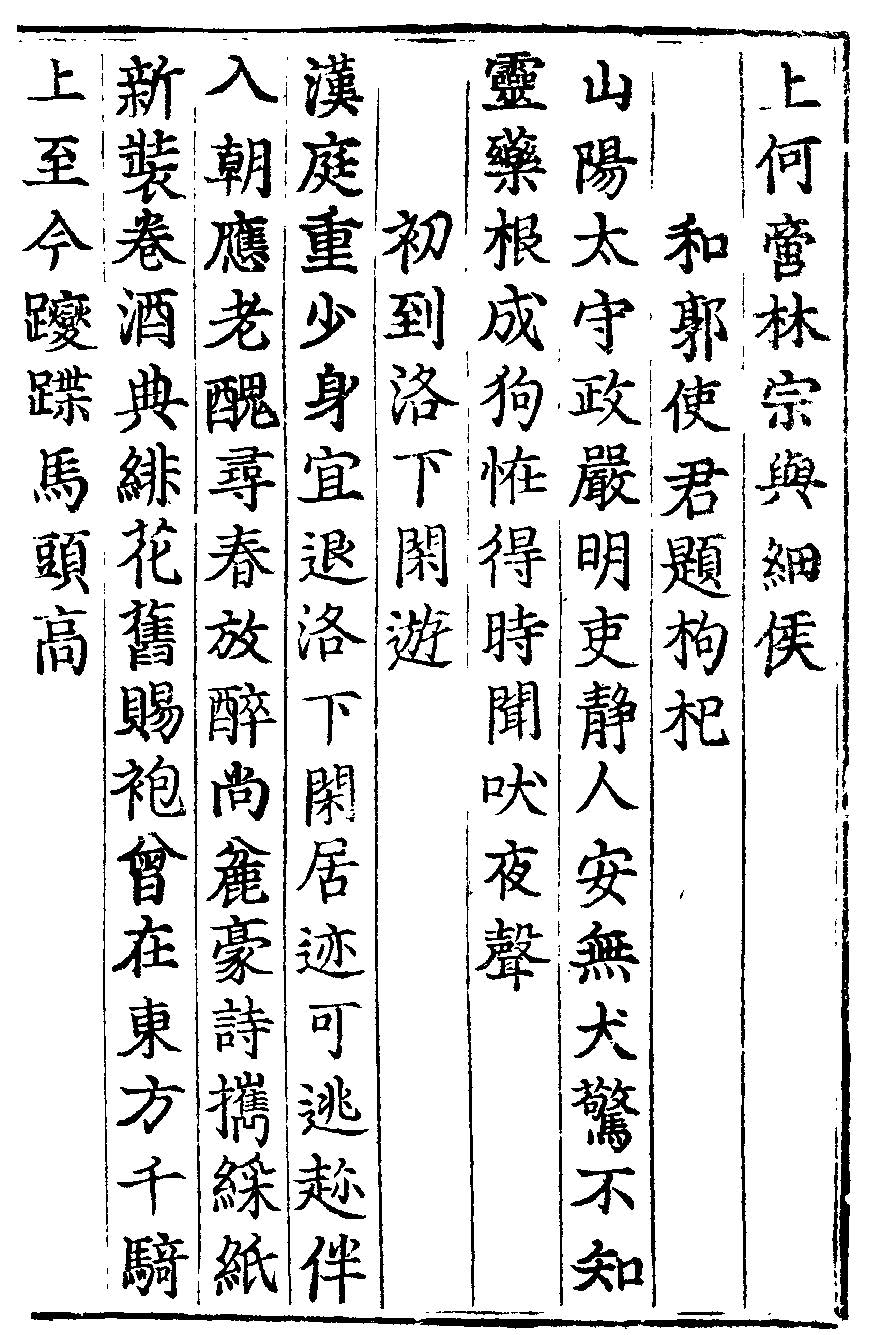 上何啻林宗與細侯
和郭使君題枸杞
山陽太守政嚴明吏静人安無犬驚不知
靈藥根成狗恠得時聞吠夜聲
初到洛下閑遊
漢庭重少身宜退洛下閑居迹可逃趂伴
入朝應老醜尋春放醉尚麄豪詩攜綵紙
新裝卷酒典緋花舊賜袍曾在東方千騎
上至今躞蹀馬頭高